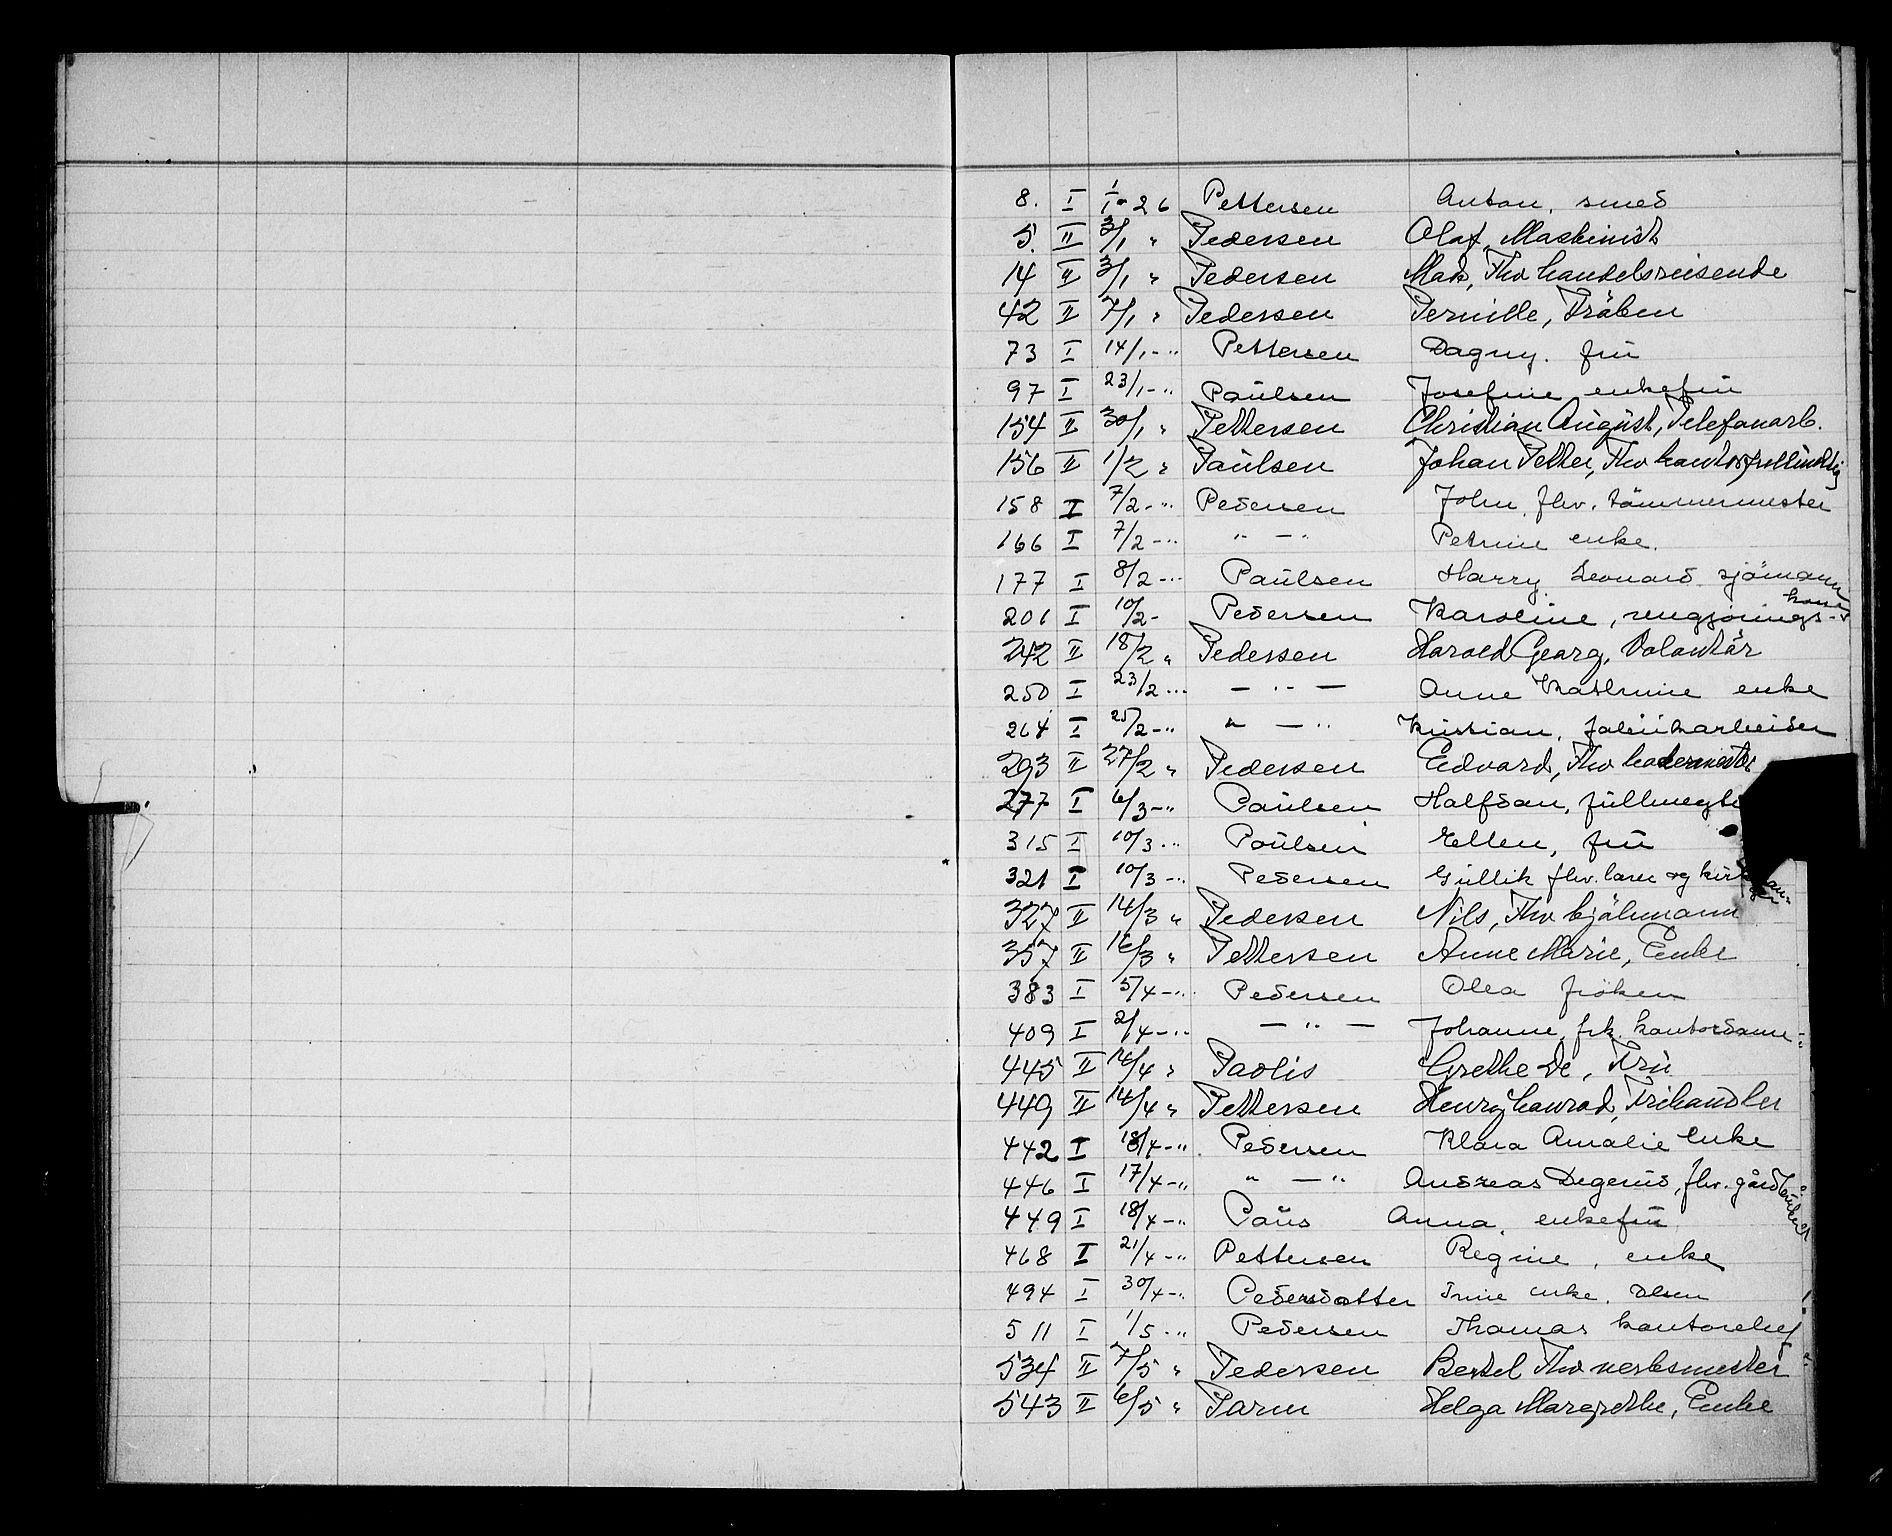 8. I 1/1-26 Pettersen Anton, smed
5. II 3/1 " Pedersen Olaf, Maskinist
14 II 3/1 " Pedersen Mads, Fhv handelsreisende
42 II 7/1 " Pedersen Pernille, Fröken
73 I 14/1-" Pettersen Dagny. frü
97 I 23/1-" Paülsen Josefine enkefrü
154 II 30/1 " Pettersen Christian Aügüst, Telefonarb.
156 II 1/2 " Paülsen Johan Petter, Fhv kontorfullmektig
158 I 7/2-" Pedersen John, fhv. tömmermester
166 I 7/2-" " - " Petrine enke.
177 I 8/2-" Paülsen Harry Leonard sjömann
201 I 10/2- Pedersen Karoline, rengjörings-kone
242 II 18/2 " Pedersen Harald Georg, Volontär
250 I 23/2-" - " - Anne Kathrine enke
264 I 25/2-" " - " Kristian, fabrikarbeider
293 II 27/2 " Pedersen Edvard, Fhv
277 I 6/3-" Paülsen Halfdan, füllmegti
315 I 10/3-" Poülsen Ellen, frü
321 I 10/3-" Pedersen Güllik fhv. lærer og
327 II 14/3 " Pedersen Nils, Fhv Sjömann
357 II 16/3 " Pettersen Anne Marie, Enke
383 I 5/4-" Pedersen Olea fröken
409 I 2/4-" - " - Johanne, frk. kontordame
445 II 14/4 " Paolis Grethe De, Frü
449 II 14/4 " Pettersen Henry Conrad, Frihandler
442 I 18/4-" Pedersen Klara Amalie Enke
446 I 17/4-" " - " Andreas Degenüs, fhv. gårdbrüker
449 I 18/4-" Paüs Anna, enkefrü
468 I 21/4-" Pettersen Regine, enke
494 I 30/4-" Pedersdatter Trine enke. Olsen
511 I 1/5-" Pedersen Thomas kontorchef
534 II 7/5 " Pedersen Bertel Fhv verksmester
543 II 6/5 " Parm Helga Margrethe, Enke